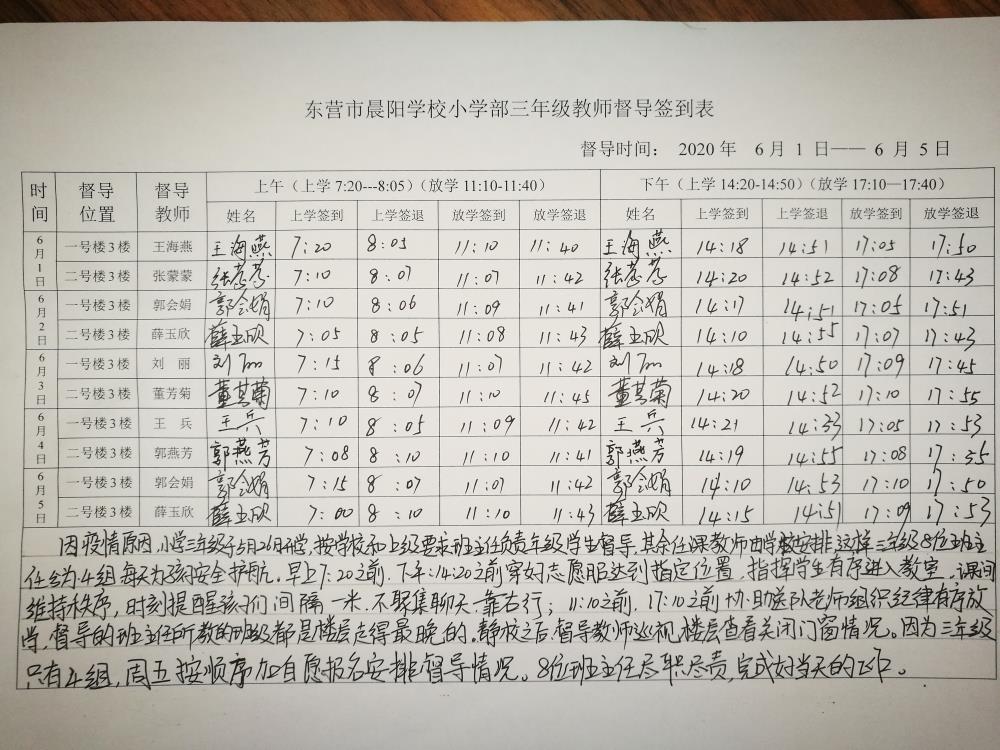 东营市晨阳学校小学部三年级教师督导签到表
督导时间： 2020 年 6 月 1 日—— 6 月 5 日
时间 督导位置 督导教师 上午（上学 7:20---8:05）（放学 11:10-11:40） 下午（上学 14:20-14:50）（放学 17:10—17:40）
姓名 上学签到 上学签退 放学签到 放学签退 姓名 上学签到 上学签退 放学签到 放学签退
6月1日 一号楼 3 楼 王海燕 王海燕 7:20 8:05 11:10 11:40 王海燕 14:18 14:51 17:05 17:50
二号楼 3 楼 张蒙蒙 张蒙蒙 7:10 8:07 11:07 11:42 张蒙蒙 14:20 14:52 17:08 17:43
6月2日 一号楼 3 楼 郭会娟 郭会娟 7:10 8:06 11:09 11:41 郭会娟 14:17 14:51 17:05 17:51
二号楼 3 楼 薛玉欣 薛玉欣 7:05 8:05 11:08 11:43 薛玉欣 14:10 14:55 17:07 17:43
6月3日 一号楼 3 楼 刘 丽 刘丽 7:15 8:06 11:07 11:42 刘丽 14:18 14:50 17:09 17:45
二号楼 3 楼 董芳菊 董芳菊 7:10 8:07 11:10 11:45 董芳菊 14:20 14:52 17:10 17:55
6月4日 一号楼 3 楼 王 兵 王兵 7:10 8:05 11:09 11:42 王兵 14:21 14:33 17:05 17:53
二号楼 3 楼 郭燕芳 郭燕芳 7:08 8:10 11:10 11:41 郭燕芳 14:19 14:55 17:08 17:35
6月5日 一号楼 3 楼 郭会娟 郭会娟 7:15 8:07 11:07 11:42 郭会娟 14:10 14:53 17:10 17:50
二号楼 3 楼 薛玉欣 薛玉欣 7:00 8:10 11:10 11:43 薛玉欣 14:15 14:51 17:09 17:53
因疫情原因,小学三年级于5月26日开学,按学校和上级要求班主任负责年级学生督导,其余任课教师由学校安排,这样三年级8位班主
任分为4组,每天为孩子安全护航。早上7:20之前,下午:14:20之前穿好志愿服达到指定位置,指挥学生有序进入教室,课间
维持秩序,时刻提醒孩子们间隔一米,不聚集聊天,靠右行；11:10之前,17:10之前协助送队老师组织纪律有序放
学,督导的班主任所教的班级都是楼层走得最晚的。静校之后,督导教师巡视楼层查看关闭门窗情况。因为三年级
只有4组,周五按顺序加自愿报名安排督导情况。8位班主任尽职尽责,完成好当天的工作。